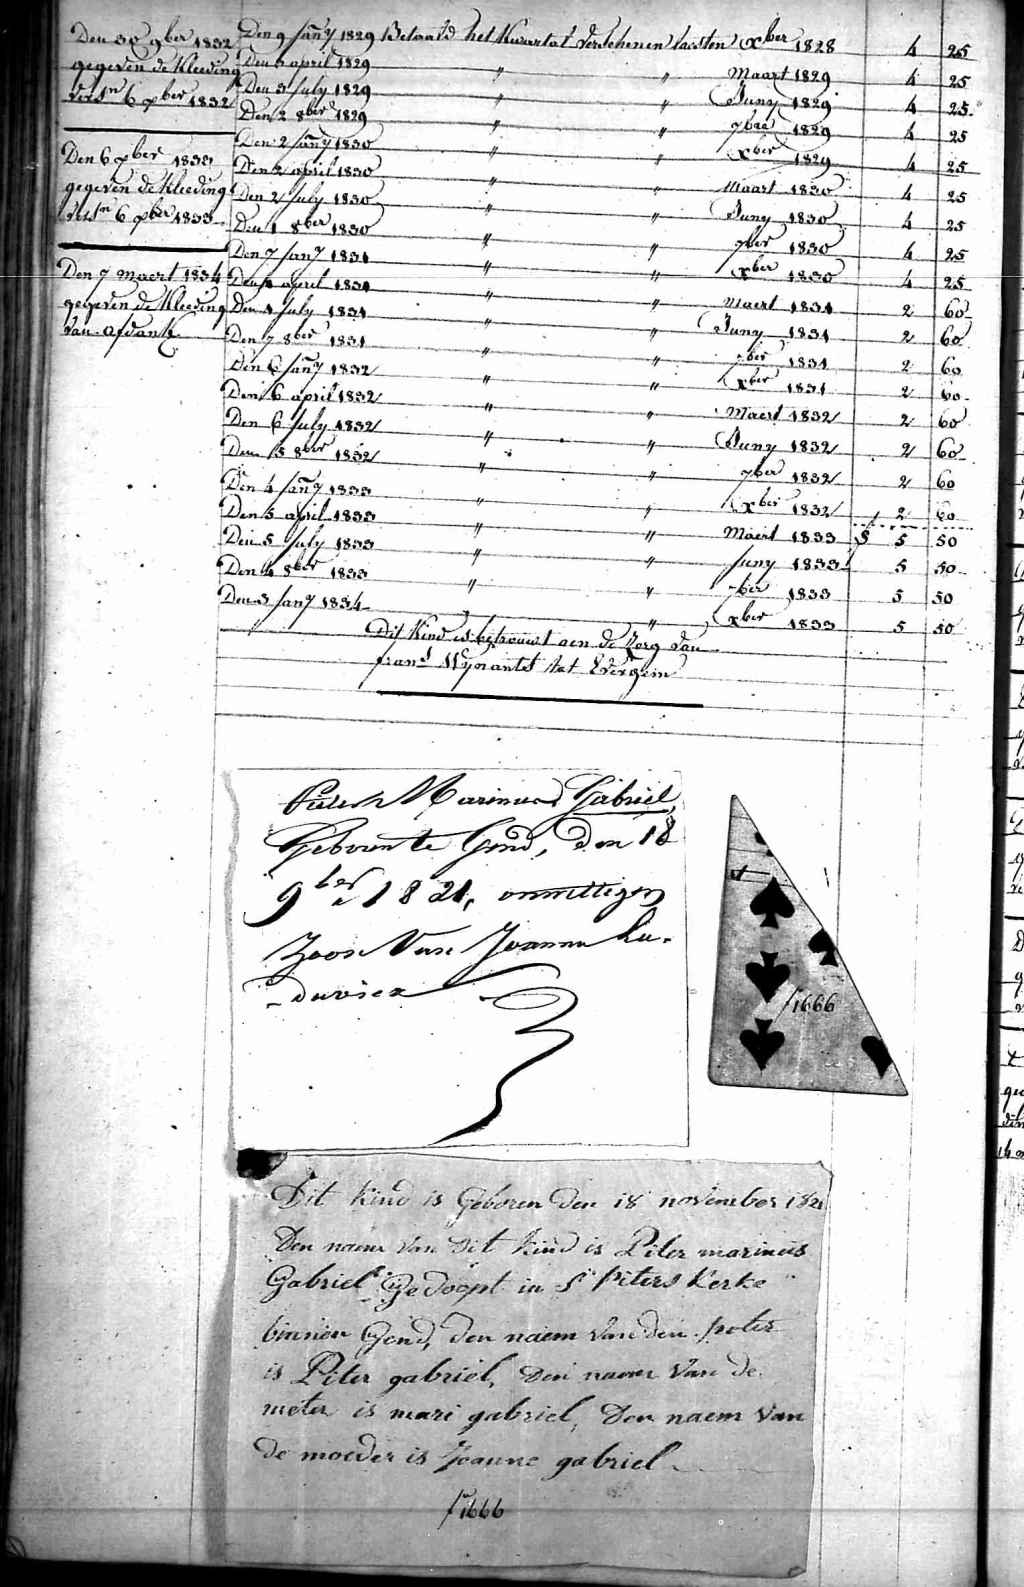 Den 30 9ber 1832
gegeven de Kleeding
vers'n 6 9ber 1832
Den 6 9ber 1833
gegeven de Kleeding
vers'n 6 9ber 1833
Den 7 maert 1834
gegeven de Kleeding
van afdank
Den 9 Jan̄y 1829 Betaald het Kwartal verschenen lasten xber 1828 4 25
Den 6 april 1829 " " Maart 1829 4 25
Den 3 July 1829 " " Juny 1829 4 25
Den 2 8ber 1829 " " 7bre 1829 4 25
Den 2 Jan̄y 1830 " " xber 1829 4 25
Den 2 april 1830 " " Maart 1830 4 25
Den 2 July 1830 " " Juny 1830 4 25
Den 1 8ber 1830 " " 7ber 1830 4 25
Den 7 Jany 1831 " " xber 1830 4 25
Den april 1831 " " Maert 1831 2 60
Den 1 July 1831 " " Juny 1831 2 60
Den 7 8ber 1831 " " 7ber 1831 2 60
Den 6 Jan̄y 1832 " " xber 1831 2 60
Den 6 april 1832 " " Maert 1832 2 60
Den 6 July 1832 " " Juny 1832 2 60
Den 5 8ber 1832 " " 7ber 1832 2 60
Den 4 Jan̄y 1833 " " xber 1832 2 60
Den 5 april 1833 " " Maert 1833 5 50
Den 5 July 1833 " " Juny 1833 5 50
Den 4 8ber 1833 " " 7ber 1833 5 50
Den 3 Jany 1834 " xber 1833 5 50
Dit Kind is betrouwt aen de Zorg van
frans Wynantst tot Evergem
Pieter Marinus Gabriel,
Geboren te Gend, den 18
9ber 1821, onwettigen
Zoon van Joanna Lu-
-duvica
f 1666
Dit Kind is Geboren den 18 november 1821
Den naem van dit kind is Piter marinus
Gabriel Gedoopt in St Piters Kerke
binnen Gend, den naem van den peter
is Piter gabriel, Den naem van de
meter is mari gabriel, Den naem van
de moeder is Joanne gabriel
f 1666